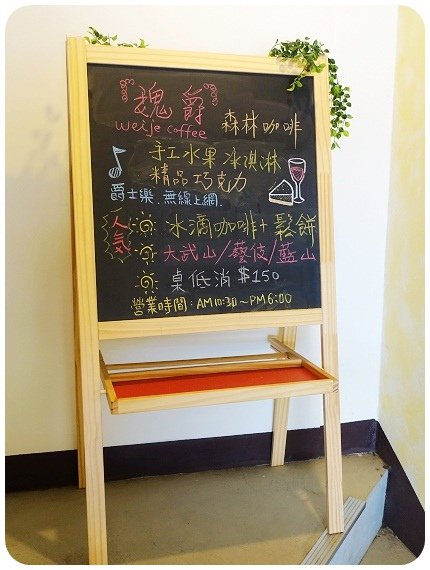 魂爵
weije coffee 森林咖啡
手工水果冰淇淋
精品巧克力
爵士樂.無線上網.
人氣
冰滴咖啡+鬆餅
大武山/藝伎/藍山
桌低消$150
營業時間:AM10:30~PM6:00